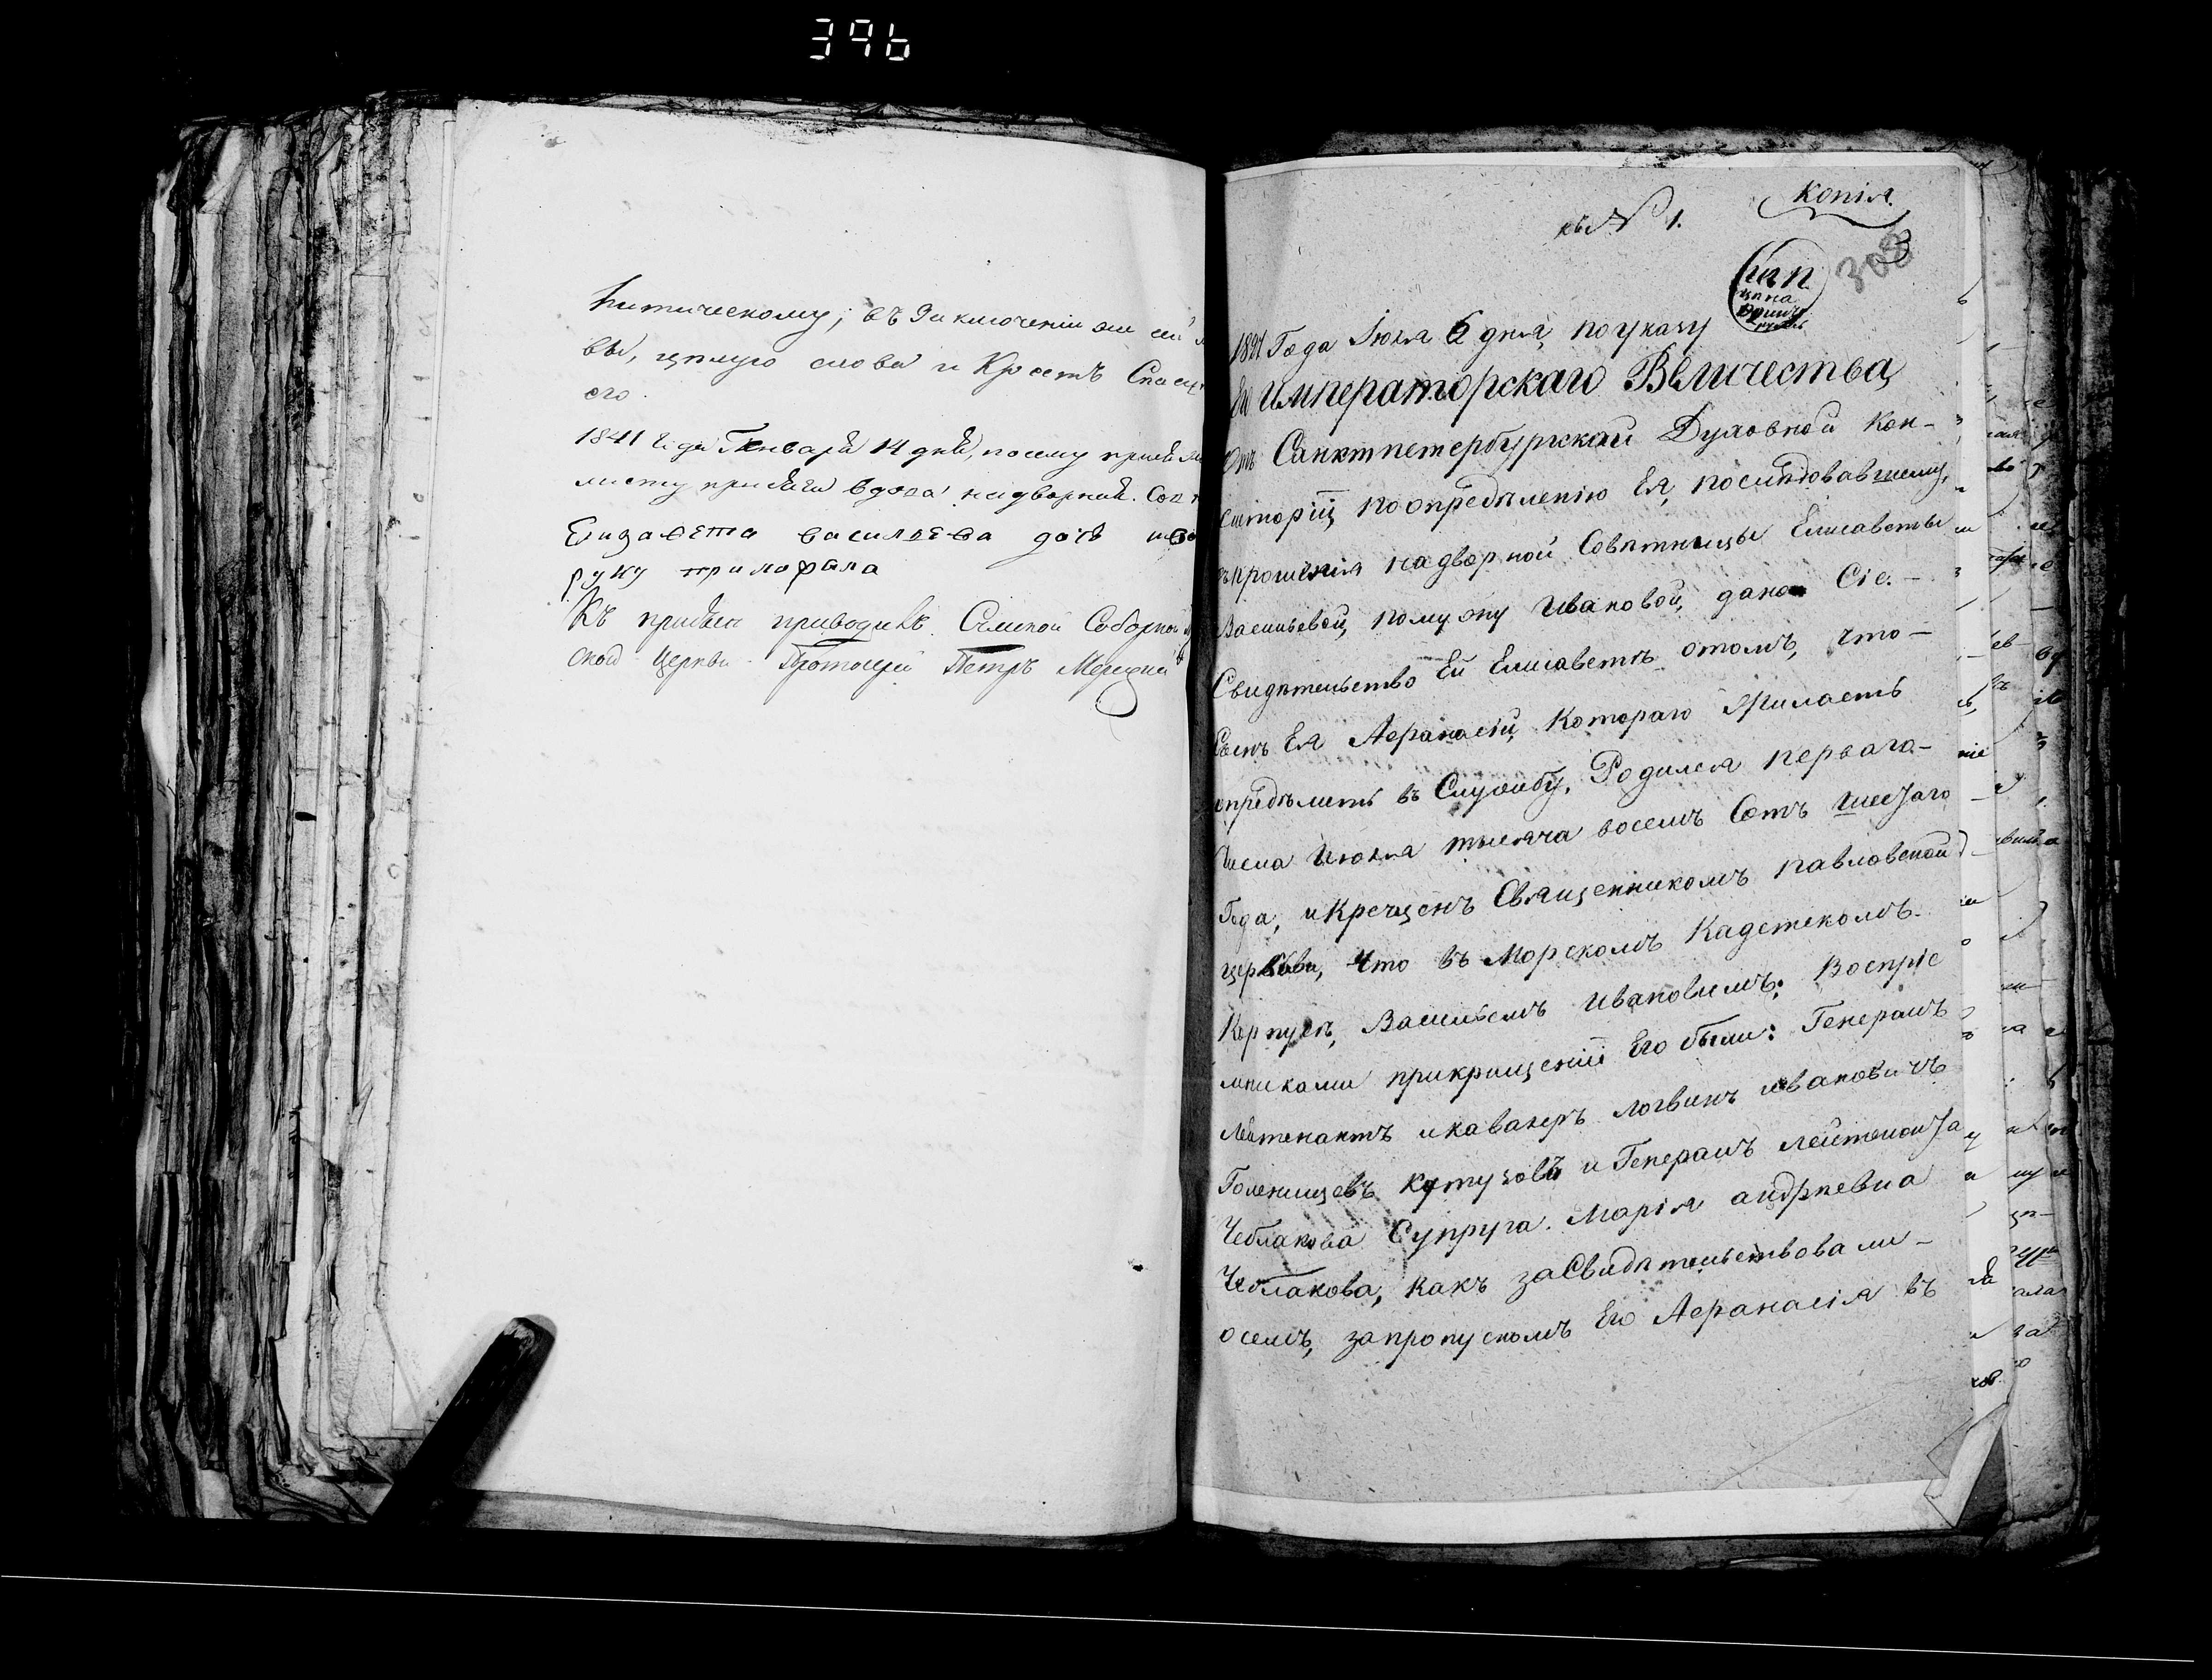 396
питическому; въ заключеніи же сей
вы, цѣлую слова и Крестъ Спаси
его.
1841 года Генваря 14 дня, по сему
листу присяги вдова надворнаго Сов
Елизавета васильева дочь
руку приложила
Къ присягѣ приводилъ Соборной
ской Церкви Протоіерей Петръ
Копія
къ № 1.
308
цѣна
1821 Года Іюля 6 дня, по указу
Его Императорскаго Величества,
Отъ Санктпетербургской Духовной Кон-
систоріи, по опредѣленію Ея, послѣдовавшему,
съ прошенія надворной Совѣтницы Елисаветы
Васильевой, по мужу Ивановой, дано Сіе. -
Свидѣтельство Ей Елисаветѣ о томъ, что -
Сынъ Ея Афанасій, котораго желаетъ
опредѣлить въ Службу, Родился перваго -
Числа Июля тысяча восемь Сотъ шестаго
Года, и Крещенъ Священникомъ павловской
церкви, что въ Морскомъ Кадетскомъ
Корпусѣ, Васильемъ Ивановымъ; Воспріе
мниками при крещеніи Его были: Генералъ
Лейтенантъ и кавалеръ Логвинъ Ивановичъ
Голенищевъ Кутузовъ и Генералъ Лейтенанта
Чеблакова Супруга Марія андреевна
Чеблакова, какъ засвидѣтельствовали -
о семъ, за пропускомъ Его Афанасія въ